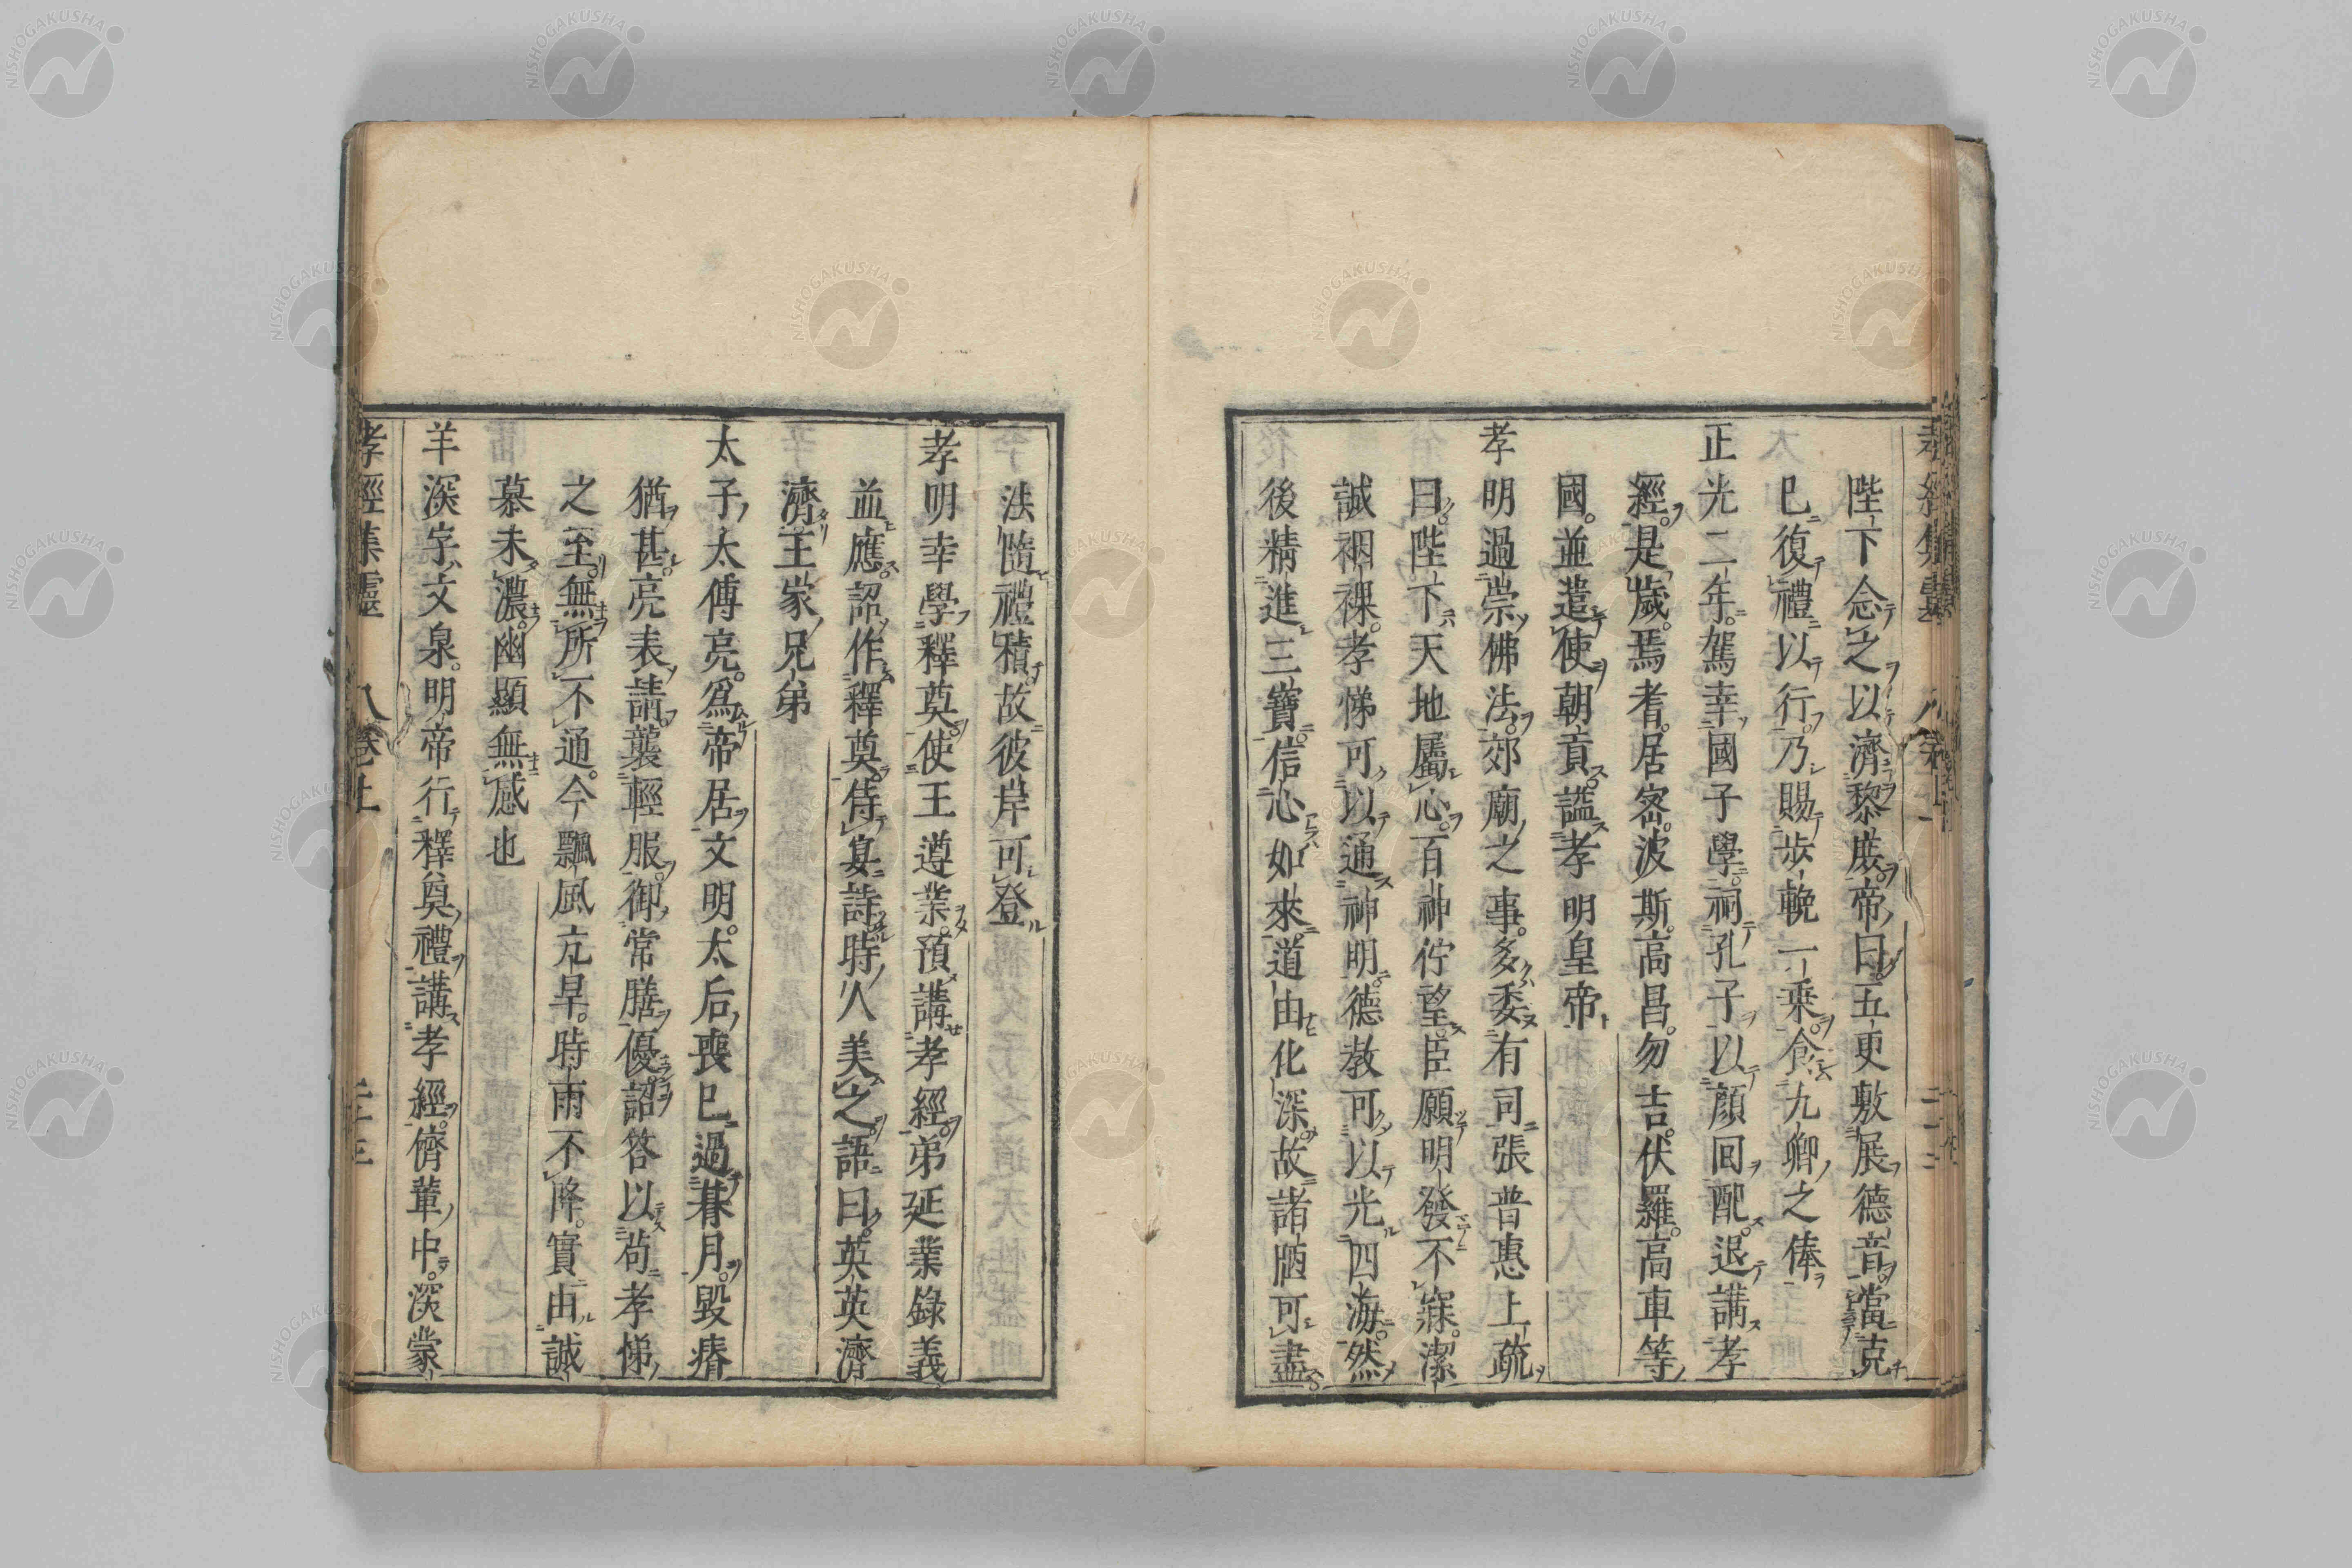 陛下念之以濟黎庶帝曰五更敷展德音當克
已復禮以行乃賜步輓一乗食九卿之俸
正光二年駕幸國子學祠孔子以顔回配退講孝
經是歲焉耆居密波斯高昌勿吉伏羅高車等
國並遣使朝貢謚孝明皇帝
孝明過崇佛法郊廟之事多委有司張普惠上疏
曰陛下天地屬心百神佇望臣願明發不寐潔
誠禋祼孝悌可以通神明德教可以光四海然
後精進三寶信心如來道由化深故諸漏可盡
法隨禮積故彼岸可登
孝明幸學釋奠使王遵業預講孝經弟延業錄義
並應詔作釋奠侍宴詩時人美之語曰英英濟
濟王家兄弟
太子太傅亮爲帝居文明太后喪巳過朞月毀瘠
猶甚亮表請襲輕服御常膳優詔答以苟孝悌
之至無所不通今飄風亢旱時雨不降實由誠
慕未濃幽顯無感也
羊深字文泉明帝行釋奠禮講孝經儕輩中深蒙
孝經集靈 八卷上
NISHOGAKUSHA